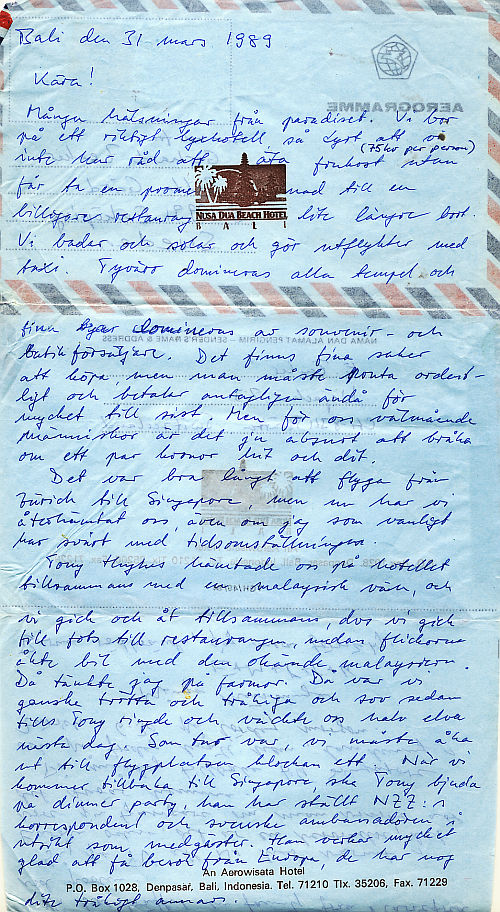 Bali den 31 mars 1989
AEROGRAMME
Kära!
Många hälsningar från paradiset. Vi bor
på ett riktigt lyxhotell så dyrt att vi
(75kr per person)
inte har råd att äta frukost utan
får ta en promenad till en
billigare restaurang lite längre bort.
NUSA DUA BEACH HOTEL
BALI
Vi badar och solar och gör utflykter med
taxi. Tyvärr domineras alla tempel och
fina byar domineras av souvenir- och
NAMA DAN ALAMAT PENGIRIM – SENDER'S NAME & ADDRESS
batikförsäljare. Det finns fina saker
att köpa, men man måste pruta ordent-
ligt och betalar antagligen ändå för
mycket till sist. Men för oss välmående
människor är det ju absurt att bråka
om ett par kronor hit och dit.
Det var bra långt att flyga från
Zürich till Singapore, men nu har vi
återhämtat oss, även om jag som vanligt
har svårt med tidsomställningen.
Tony Hughes hämtade oss på hotellet
tillsammans med en malaysisk vän, och
vi gick och åt tillsammans, dvs vi gick
till fots till restaurangen, medan flickorna
åkte bil med den okände malaysiern.
Då tänkte jag på farmor. Då var vi
ganska trötta och tråkiga och sov sedan
tills Tony ringde och väckte oss halv elva
nästa dag. Som tur var, vi måste åka
ut till flygplatsen klockan ett. När vi
kommer tillbaka till Singapore ska Tony bjuda
på dinner party, han har ställt NZZ:s
korrespondent och svenske ambassadören i
utsikt som medgäster. Han verkar mycket
glad att få besök från Europa, de har nog
An Aerowisata Hotel
P.O. Box 1028, Denpasar, Bali, Indonesia. Tel. 71210 Tlx. 35206, Fax. 71229
lite tråkigt annars.